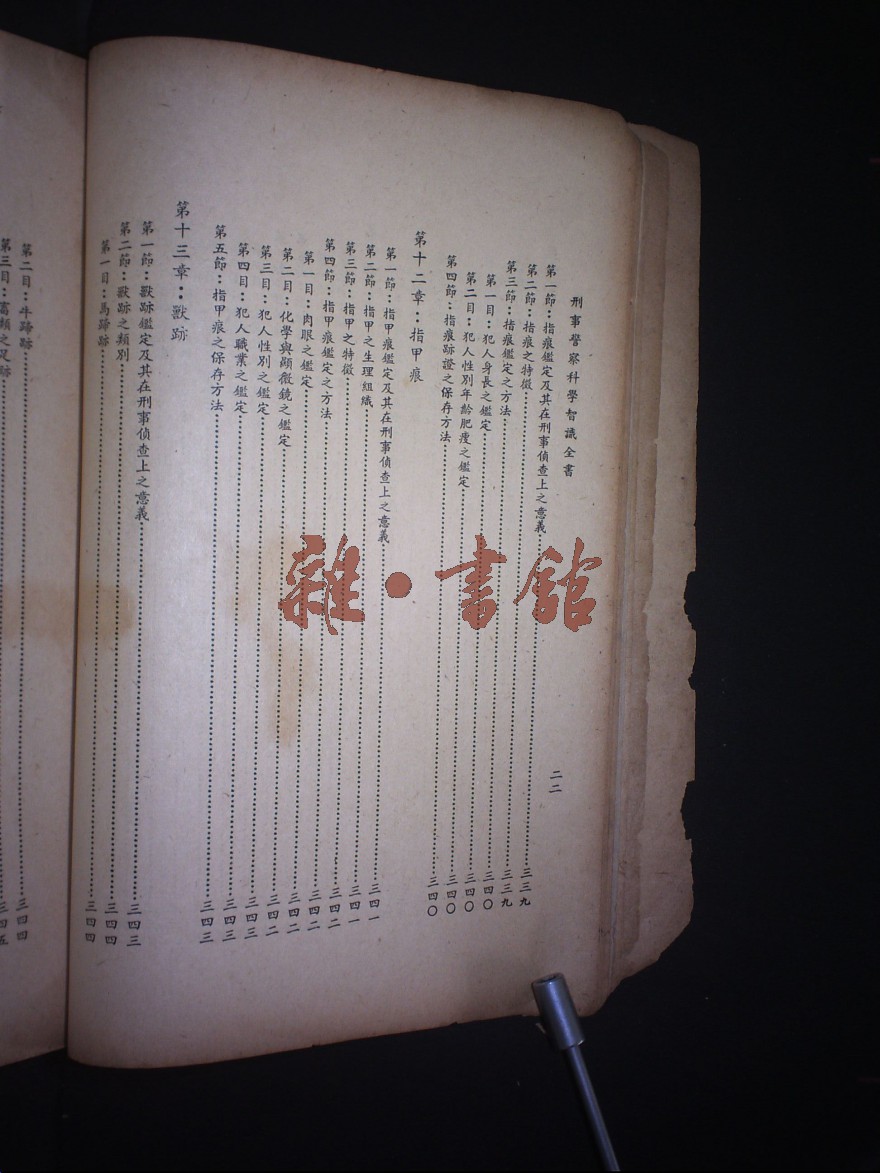 刑事警察科學智識全書
二二
第一節：指痕鑑定及其在刑事偵查上之意義 三三九
第二節：指痕之特徵 三三九
第三節：指痕鑑定之方法 三四〇
第一目：犯人身長之鑑定 三四〇
第二目：犯人性別年齡肥瘦之鑑定 三四〇
第四節：指痕跡證之保存方法 三四〇
第十二章：指甲痕
第一節：指甲痕鑑定及其在刑事偵查上之意義 三四一
第二節：指甲之生理組織 三四一
第三節：指甲之特徵 三四二
第四節：指甲痕鑑定之方法 三四二
第一目：肉眼之鑑定 三四二
第二目：化學與顯微鏡之鑑定 三四二
第三目：犯人性別之鑑定 三四三
第四目：犯人職業之鑑定 三四三
第五節：指甲痕之保存方法 三四三
第十三章：獸跡
第一節：獸跡鑑定及其在刑事偵查上之意義 三四三
第二節：獸跡之類別 三四四
第一目：馬蹄跡 三四四
第二目：牛蹄跡 三四四
第三目：之足跡 三四五
雜·書館